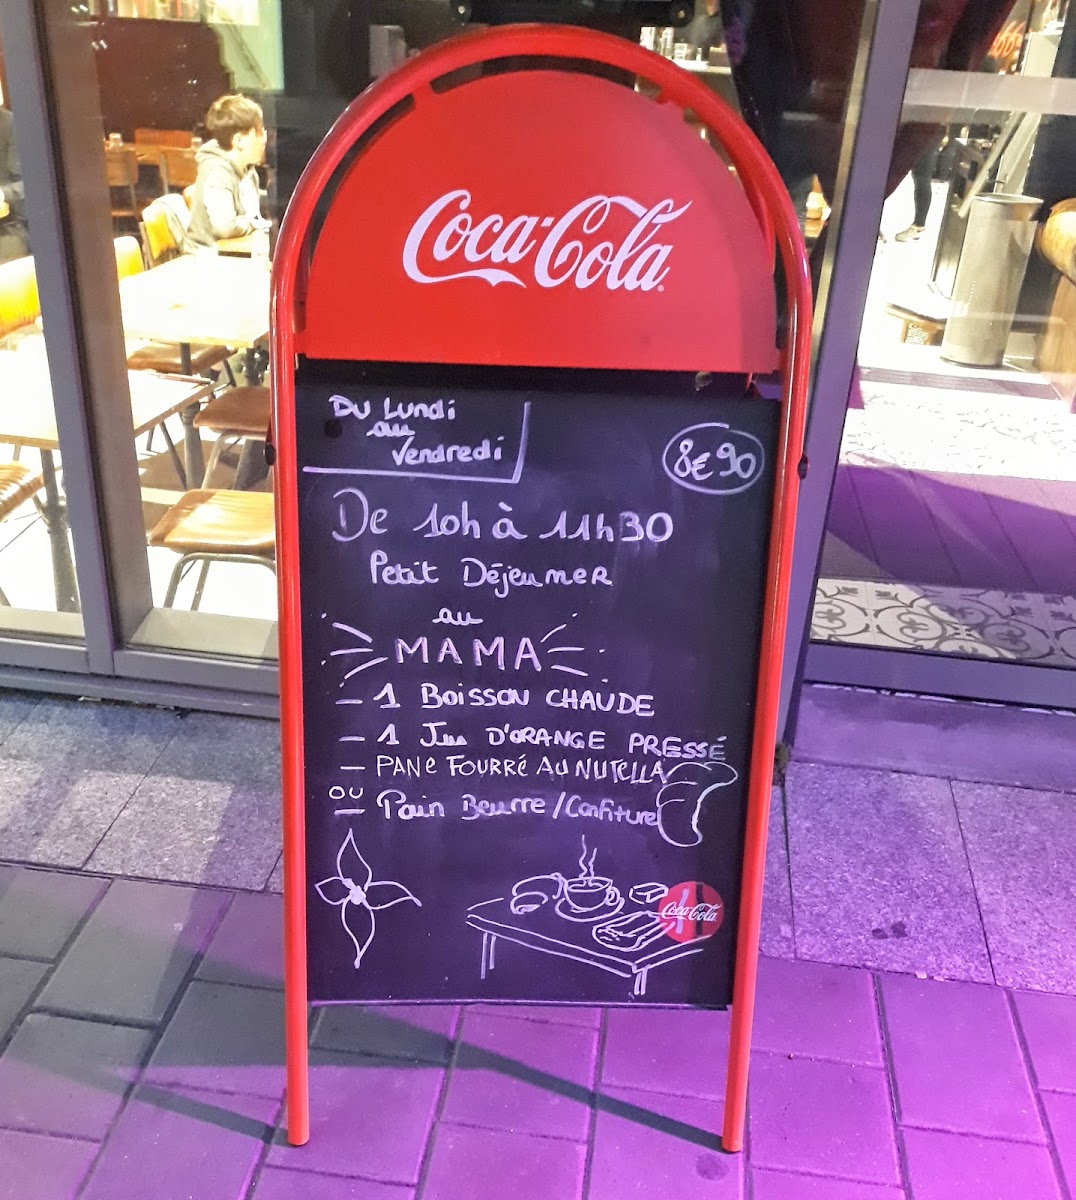 Coca-Cola
Du Lundi
au
Vendredi
8€90
De 10h à 11h30
Petit Déjeuner
au
MAMA
- 1 Boisson CHAUDE
- 1 Jus D'ORANGE PRESSÉ
- PANE FOURRÉ AU NUTELLA
OU
- Pain Beurre/Confiture
Coca-Cola